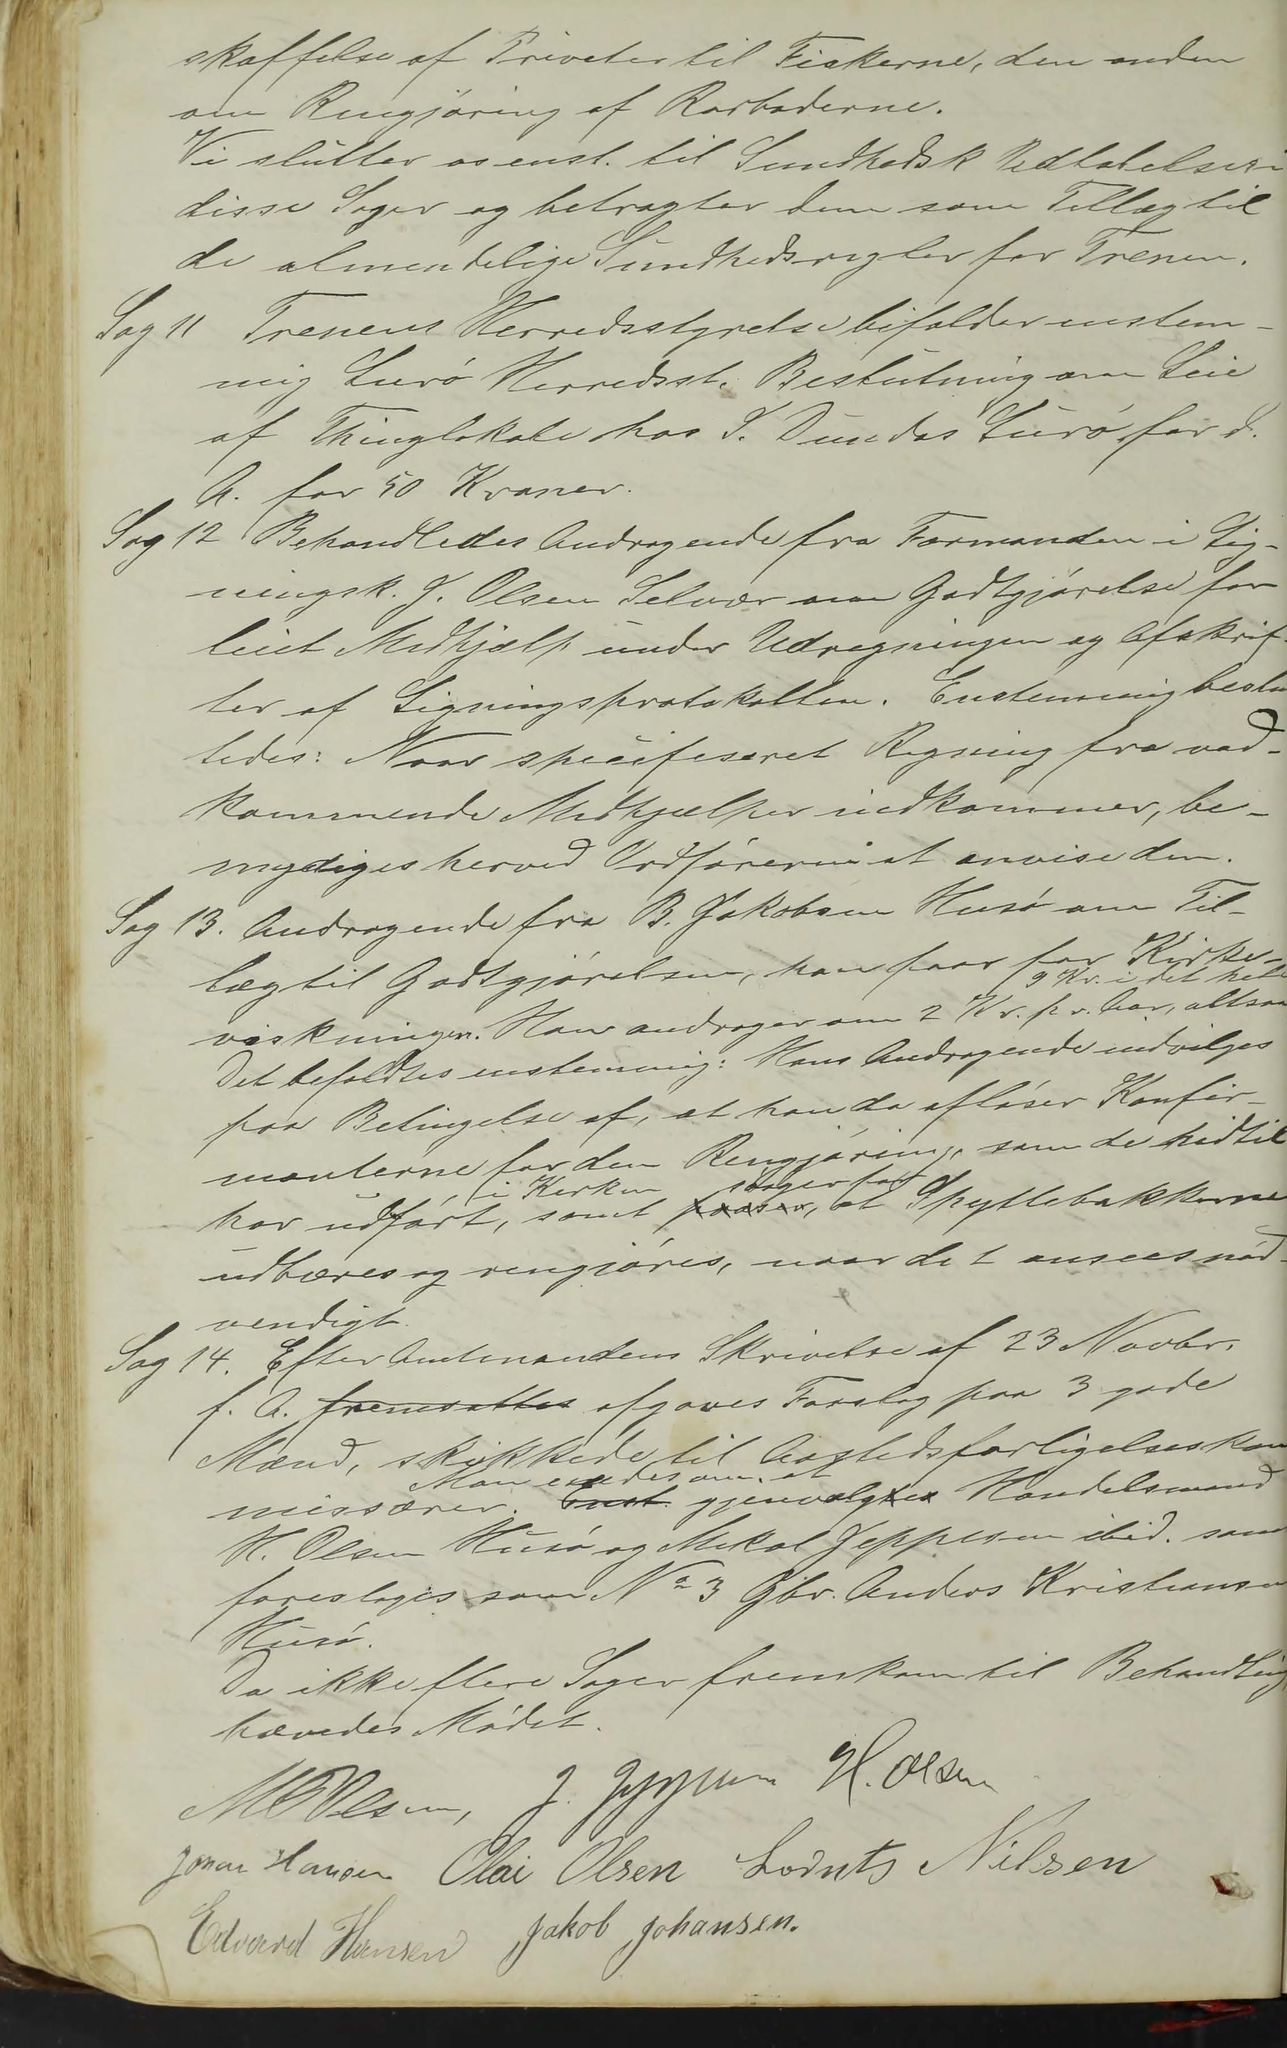 skaffelse af Priveter til Fiskerne, den anden
om Rengjøring af Rorboderne.
Vi slutter os enst. til Sundhedsk Vedtatelser i
disse Sager og betragter dem som Tillæg til
de almendelige Sundhedsregler for Trenen.
Sag 11 Trenens Herredsstyrelse bifalder enstem-
mig Lurø Herredsst. Beslutning om Leie
af Thinglokale hos I. Dundas Lurø for d.
A. for 50 Kroner.
Sag 12 Behandledes Andragende fra Formanden i Lig-
ningsk. J. Olsen Selvær om Godtgjørelse for
leiet Medhjælp under Udregningen og Afskrif-
ter af Ligningsprotokollen. Enstemmig beslu
tedes: Naar specifiseret Regning fra ved-
kommende Medhjælper indkommer, be-
mydiges herved Ordføreren at anvise den.
Sag 13. Andragende fra B. Jakobsen Husø om Til-
læg til Godtgjørelsen, han faar for Kirke-
9 Kr. i det hele
viskningen. Han andrager om 2 Kr. pr. Aar, altsaa
Det befaldtes enstemmig: Hans Andragende indvilges
paa Betingelse af, at han da afløser Konfir-
manterne for den Rengjøring, som de hidtil
i Kirken sørger for
har udført, samt passer, at Spyttebakkerne
udbæres og rengjøres, naar det ansees nød-
vendigt.
Sag 14. Efter Amtmandens Skrivelse af 23 Novbr.
f. A. fremsattes afgaves Forslag paa 3 gode
Mænd, skikkede til Aastedsforligelseskom
Man enedes om at
missærer. Enst. gjenvalgtes Handelsmand
H. Olsen Husø og Mekal Jeppesen ibid. samt
foresloges som No 3 Gbr. Anders Kristiansen
Husø.
Da ikke flere Sager fremkom til Behandling
hævedes Mødet.
M Olsen, J. Jeppesen H. Olsen
Johan Hansen Olai Olsen Lornts Nilsen
Edvard Hansen Jakob Johansen.